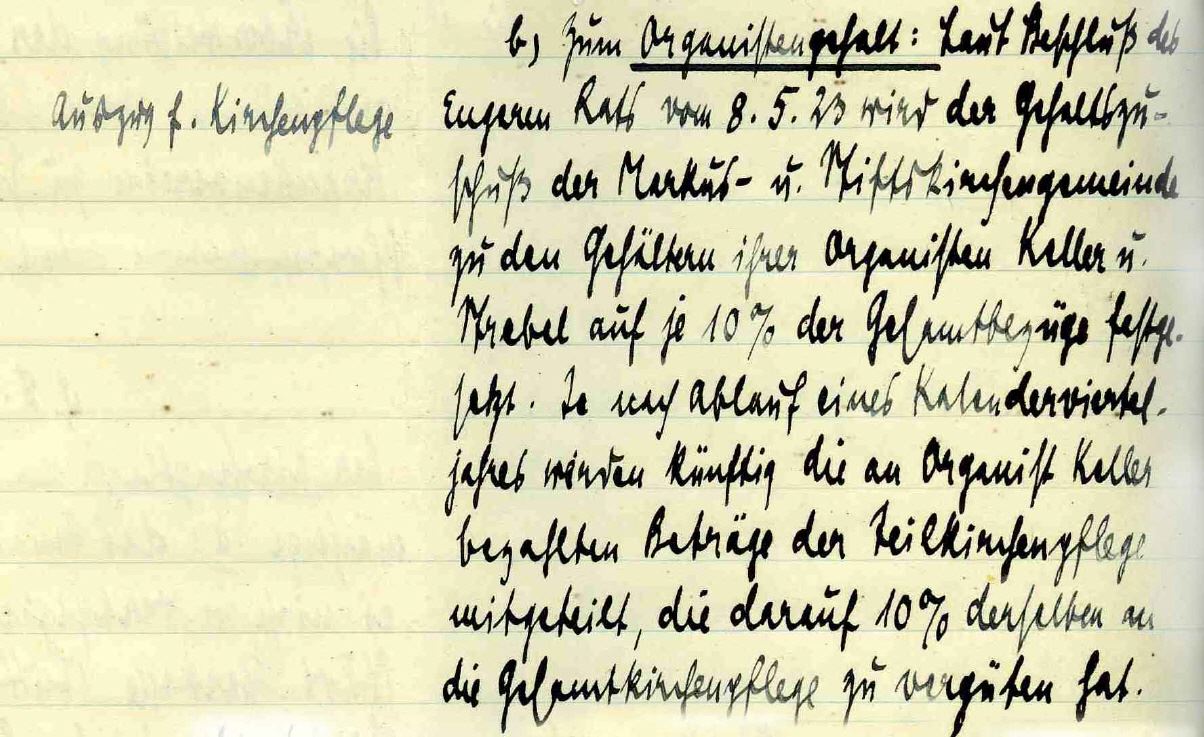 b) Zum Organistengehalt: Laut Beschluß des
Auszug f. Kirchenpflege
Engeren Rats vom 8.5.23 wird der Gehaltszu-
schuß der Markus- u. Stiftskirchengemeinde
zu den Gehältern ihrer Organisten Keller u.
Strebel auf je 10% der Gesamtbezüge festge-
setzt. Je nach Ablauf eines Kalenderviertel-
jahres werden künftig die an Organist Keller
bezahlten Beträge der Teilkirchenpflege
mitgeteilt, die darauf 10% derselben an
die Gesamtkirchenpflege zu vergüten hat.